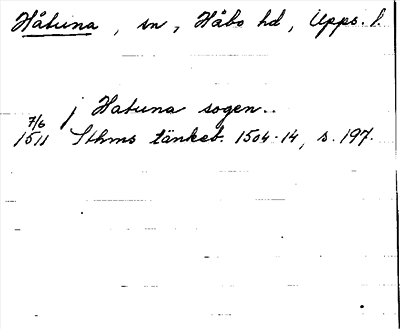 Håtuna, sn, Håbo hd, Upps. l.
j Hatuna sogen..
7/6
1511 Sthms tänkeb. 1504-14, s. 197.